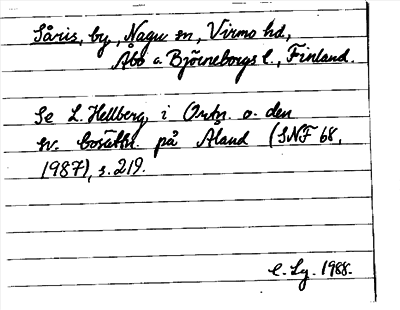 Såris, by, Nagu sn, Virmo hd,
Åbo o. Björneborgs l., Finland.
Se L. Hellberg i Ortn. o. den
sv. bosättn. på Åland (SNF 68,
1987), s. 219.
E. Lg. 1988.